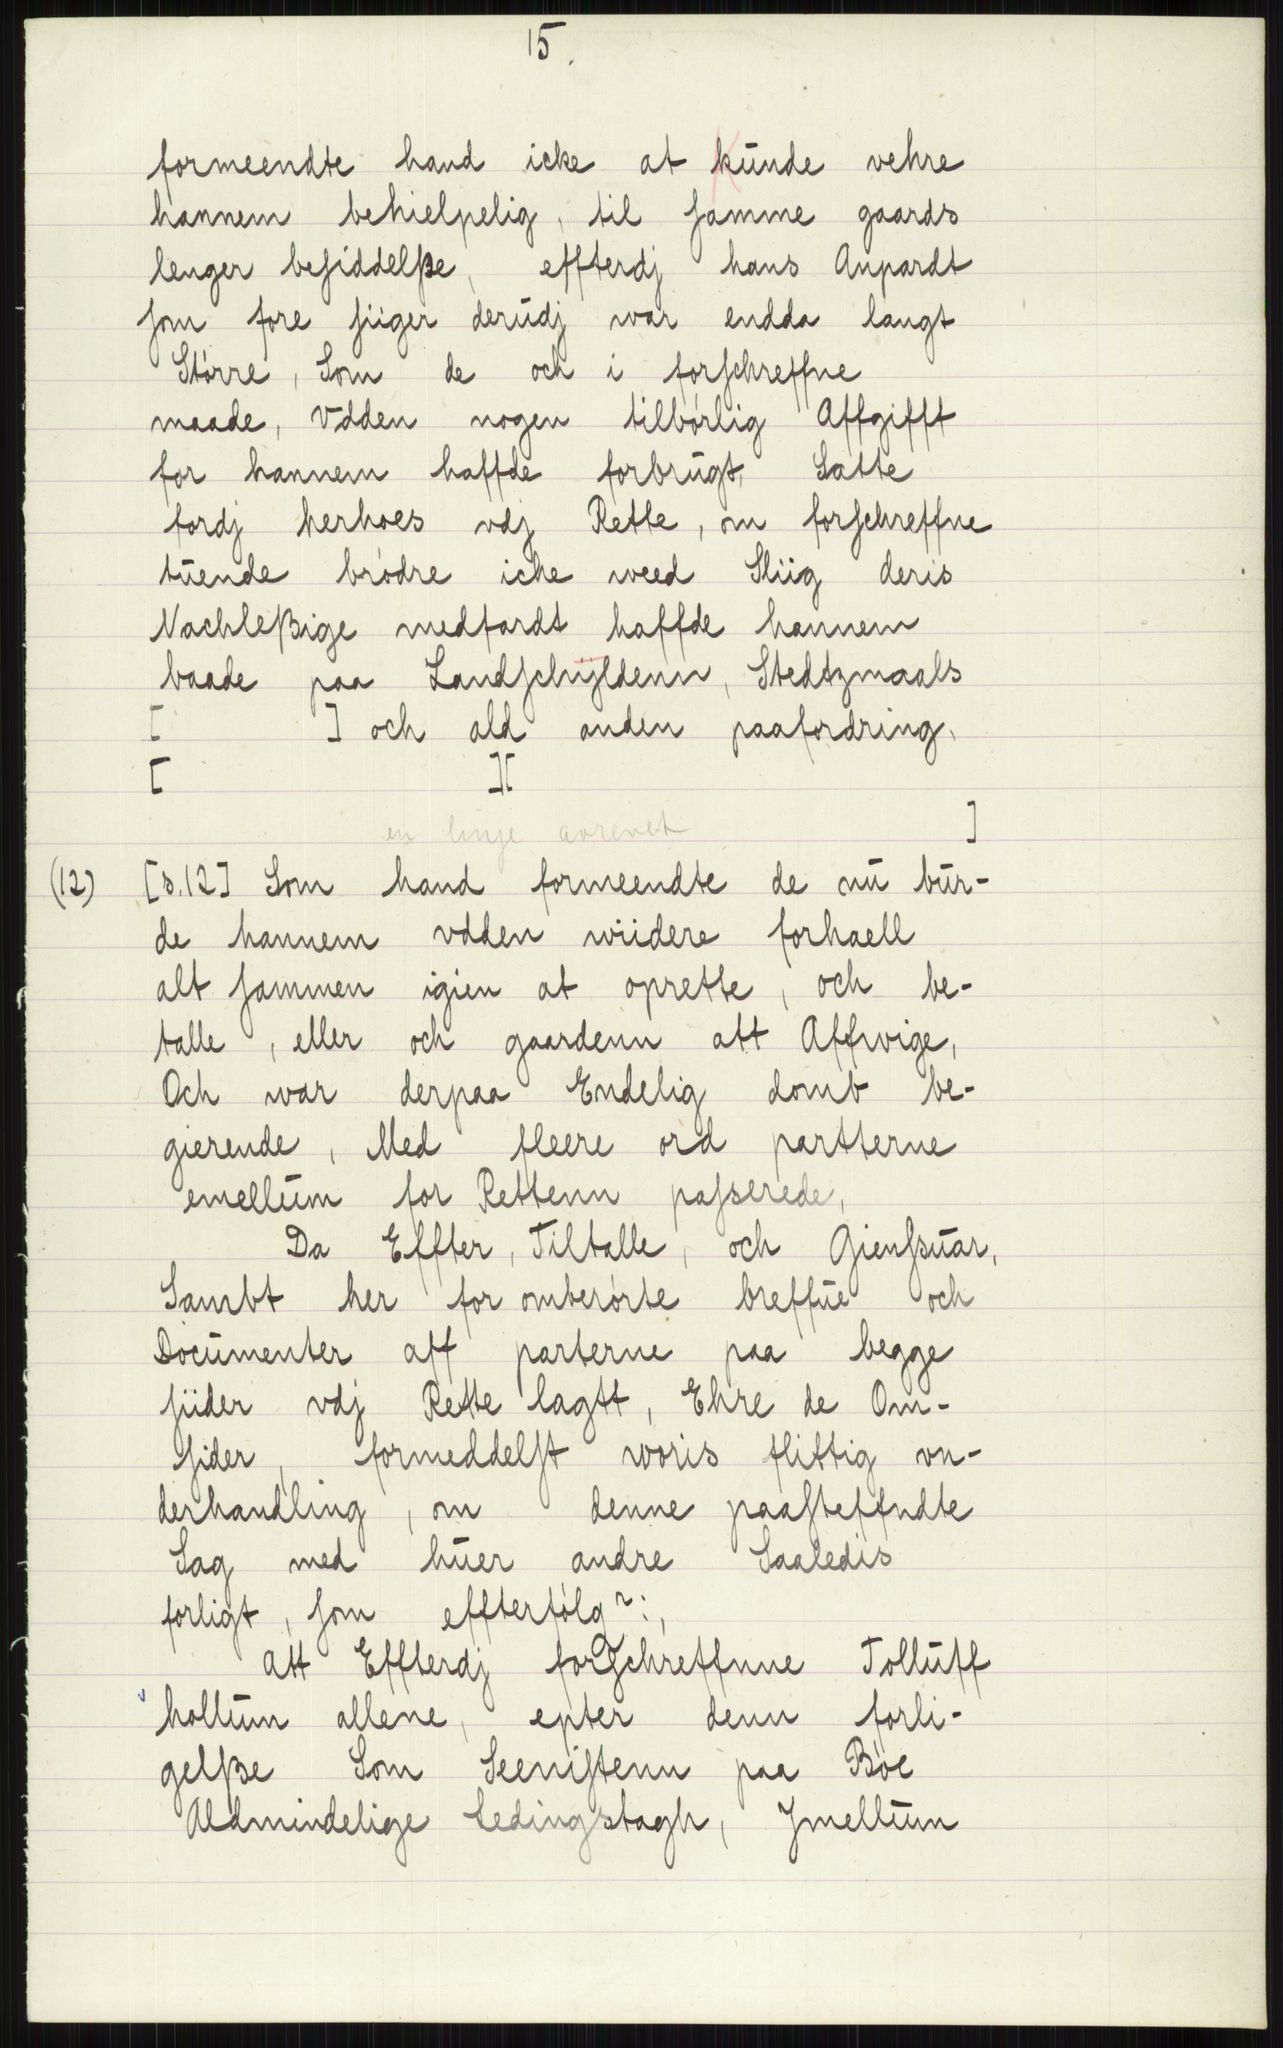 15.
formeendte hand icke at kunde vehre
hannem behielpelig, til samme gaards
lenger besiddelße, effterdj hans Anpardt
som fore siiger derudj war endda langt
Större, Som de och i forschreffne
maade, Vdden nogen tilbørlig Affgifft
for hannem haffde forbrugt, Satte
fordj herhoes vdj Rette, om forschreffne
tuende brødre icke weed Sliig deris
Nachleßige medfardt haffde hannem
baade paa Landschyldenn, Stedtzmaals
[ ] och ald anden paafordring,
[ ][
en linje avrevet ]
(12) [s.12] Som hand formeendte de nu bur-
de hannem vdden wiidere forhaell
alt sammen igien at oprette, och be-
talle, eller och gaardenn att Affwige,
Och war derpaa Endelig domb be-
gierende, Med fleere ord partterne
emellum for Rettenn passerede,
Da Effter, Tiltalle, och Giensuar,
Sambt her for omberørte breffue och
Documenter aff parterne paa begge
siider vdj Rette lagtt, Ehre de Om-
sider, formeddelst woris flittig vn-
derhandling, om denne paasteffndte
Sag med huer andre Saaledis
forligt, som effterfølg~:,
Att Effterdj forschreffnne Tolluff
hollum allene, epter denn forli-
gelße Som Seenistenn paa Bøe
Aldmindelige Ledingstagh, Jmellum